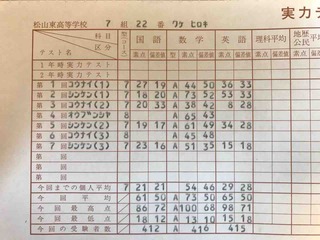 実力テ
松山東高等学校 7 組 22 番 ワケ ヒロキ
科目 型(コース) 国語 数学 英語 理科平均 地歴公民平
テスト名 区分 素点 偏差値 型 素点 偏差値 素点 偏差値 素点 偏差値 素点
1年時実力テスト
2年時実力テスト
第1回コウナイ(1) 7 27 19 A 44 50 36 33
第2回シンケン(1) 7 18 20 A 73 52 53 33
第3回コウナイ(2) 7 20 33 A 38 42 8 28
第4回オウブンシヤ A 65 43
第5回シンケン(2) 7 19 17 A 61 49 34 28
第6回コウナイ(3) A 45 48
第7回シンケン(3) 7 23 16 B 51 35 15 18
第 回
第 回
第 回
今回までの個人平均 7 21 21 54 46 29 28
今回 平均 61 50 A 73 50 65 50
今回 最高点 86 72 A 100 68 98 71
今回 最低点 18 12 A 13 10 15 18
今回の受験者数 412 A 416 415